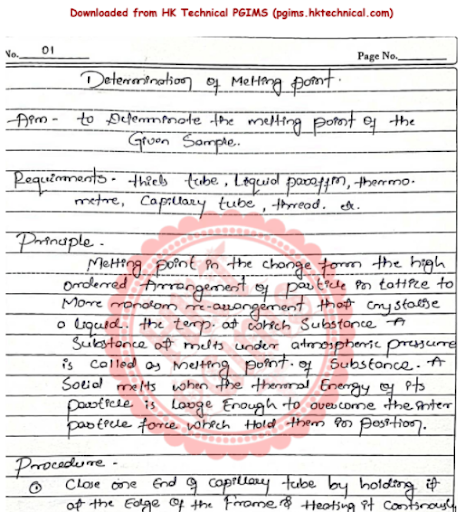 Downloaded from HK Technical PGIMS (pgims.hktechnical.com)
No. 01
Page No.
Determination of Melting point.
Aim - to Determinate the melting point of the
Given Sample.
Requirments - thiels tube, Liquid paraffin, thermo-
metre, Capillary tube, thread. etc.
Principle -
Melting point in the change form the high
ordered Arrangement of particle in lattice to
More random re-arrangement that crystalise
a liquid. the temp. at which Substance A
Substance at melts under atmospheric pressure
is called as Melting point. of Substance. A
Solid melts when the thermal Energy of its
particle is Large Enough to overcome the inter
particle force which Hold them in position.
Procedure -
① Close one End of capillary tube by holding it
at the Edge of the frame & Heating it Continously